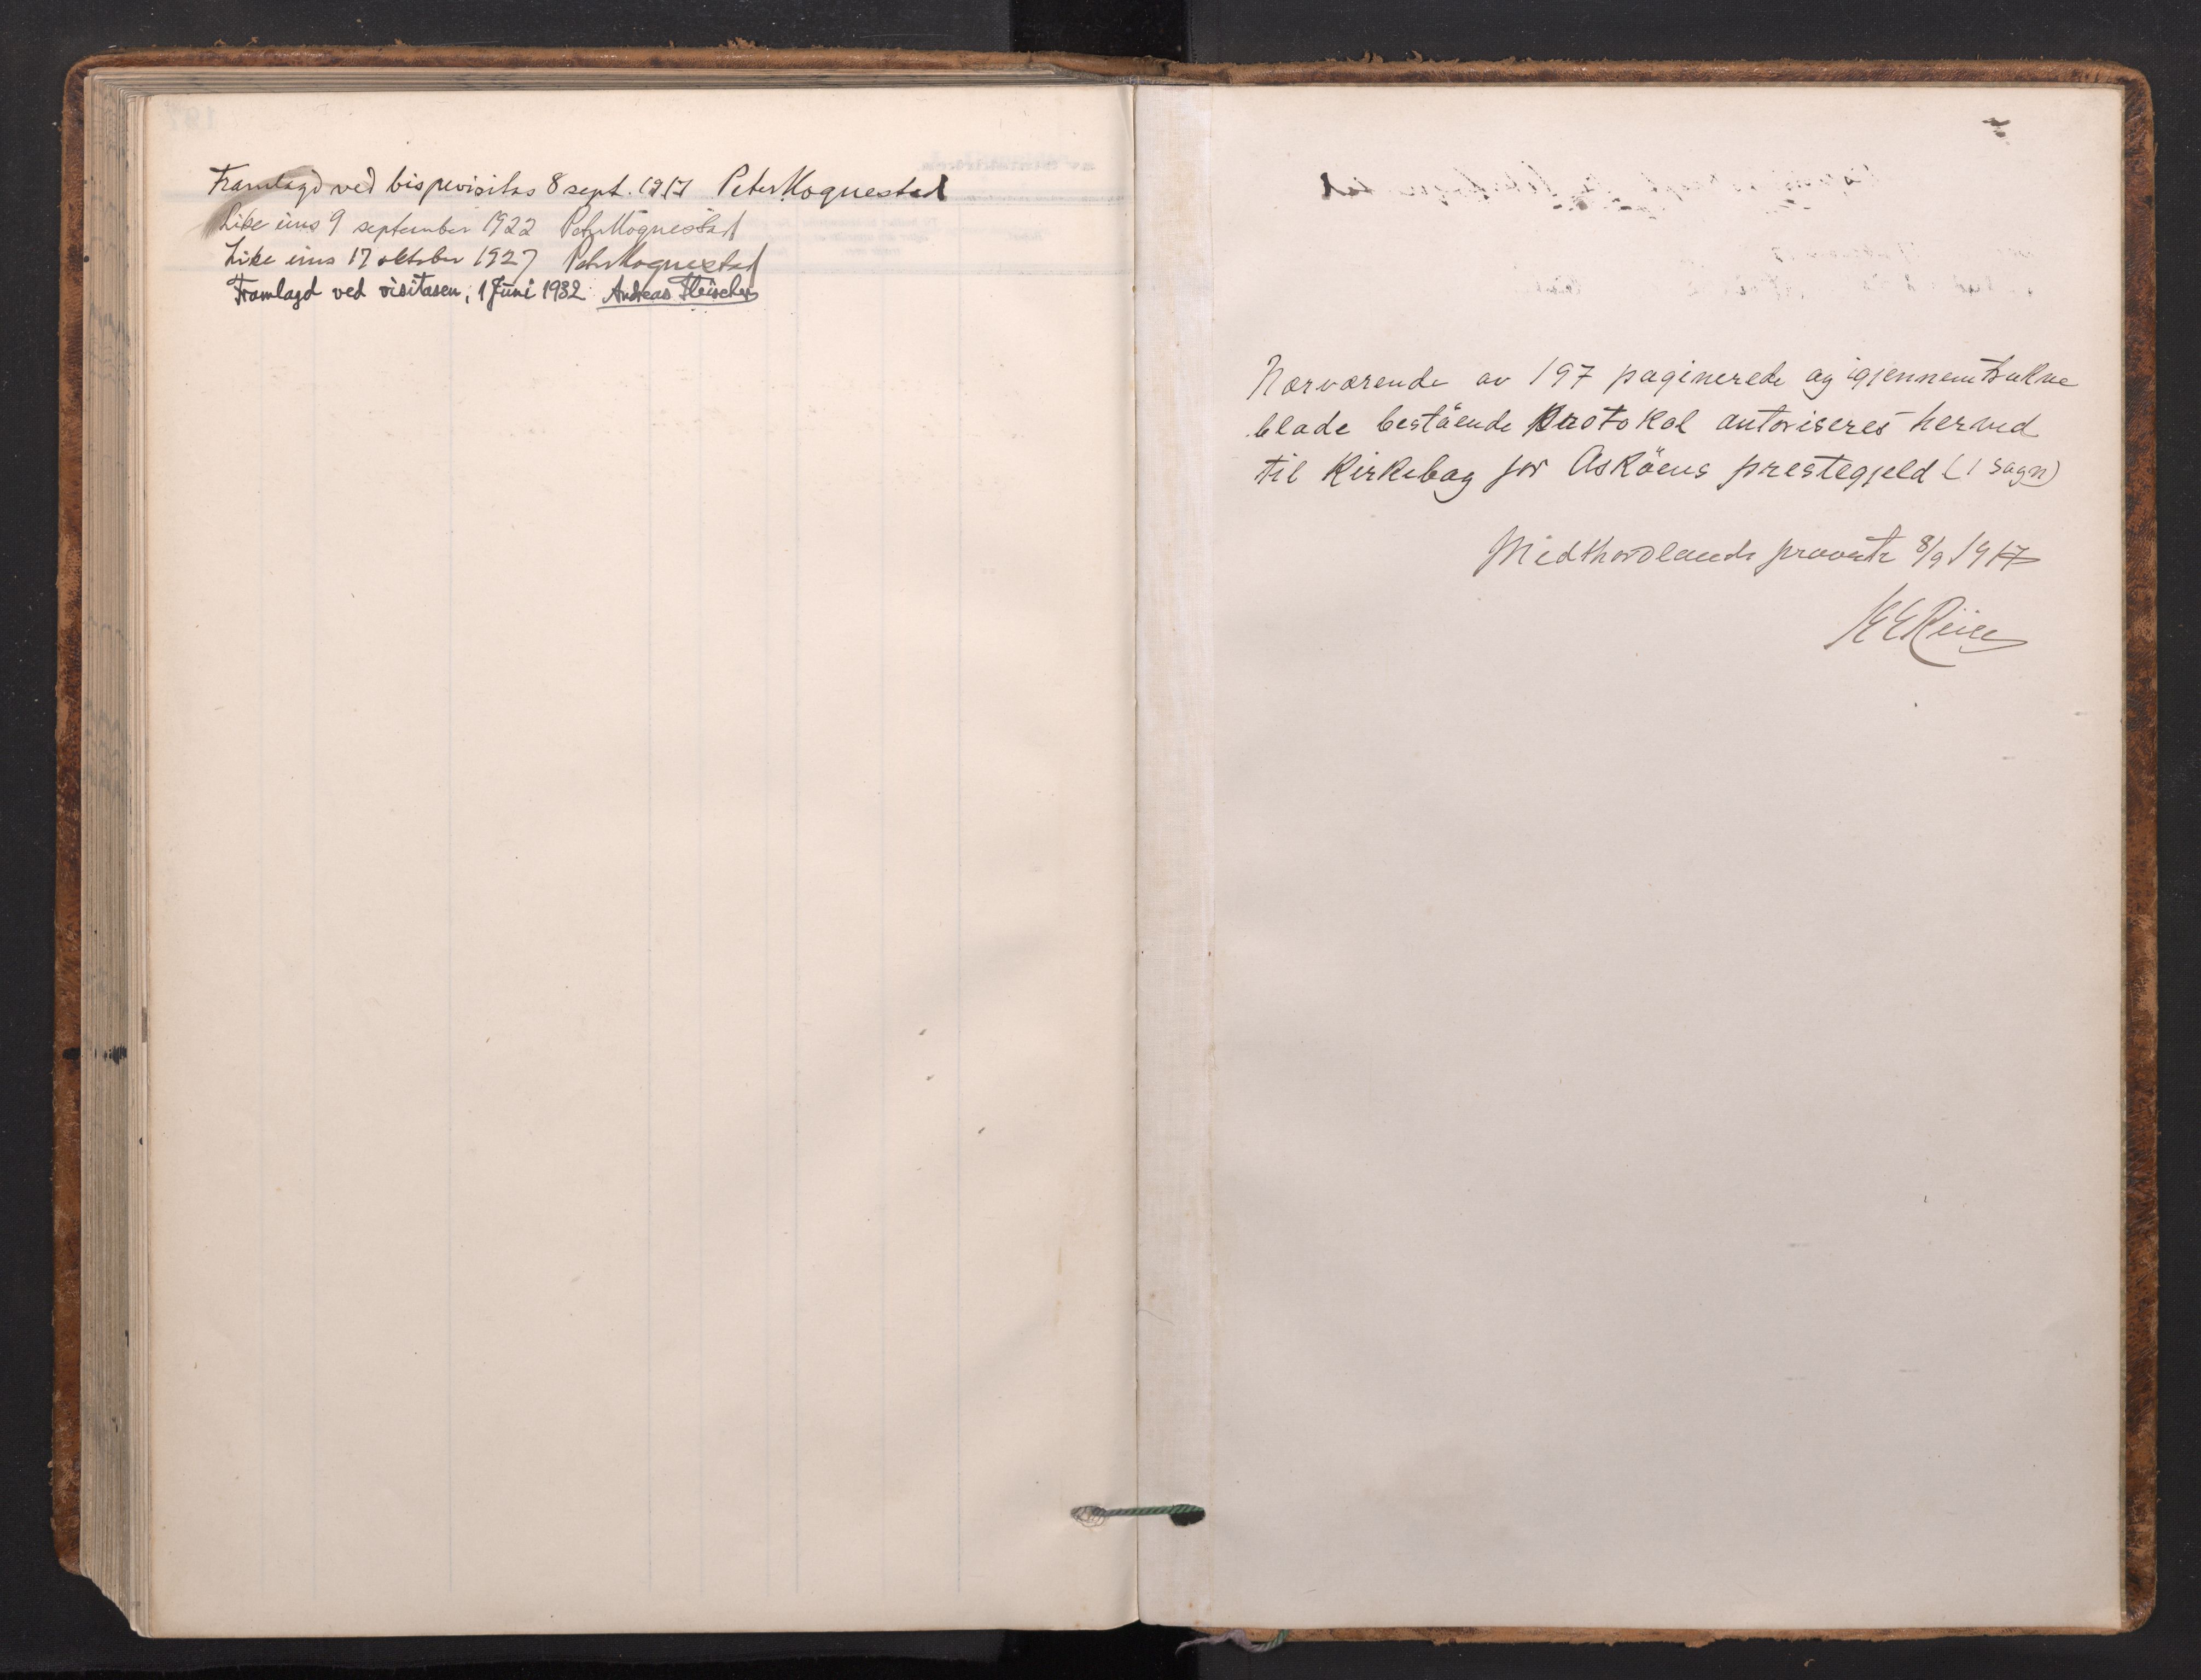 Framlagd ved bispevisitas 8 sept. 1917 Peter Hognestad
Like eins 9 september 1922 Peter Hognestad
Like eins 17 oktober 1927 Peter Hognestad
Framlagd ved visitasen, 1 Juni 1932 Andreas Fleischer
Nærværende av 197 paginerede og igjennemtrukne
blade bestående Protokol autoriseres herved
til Kirkebog for Askøens prestegjeld (1 sogn)
Midthordlands provsti 8/9 1917